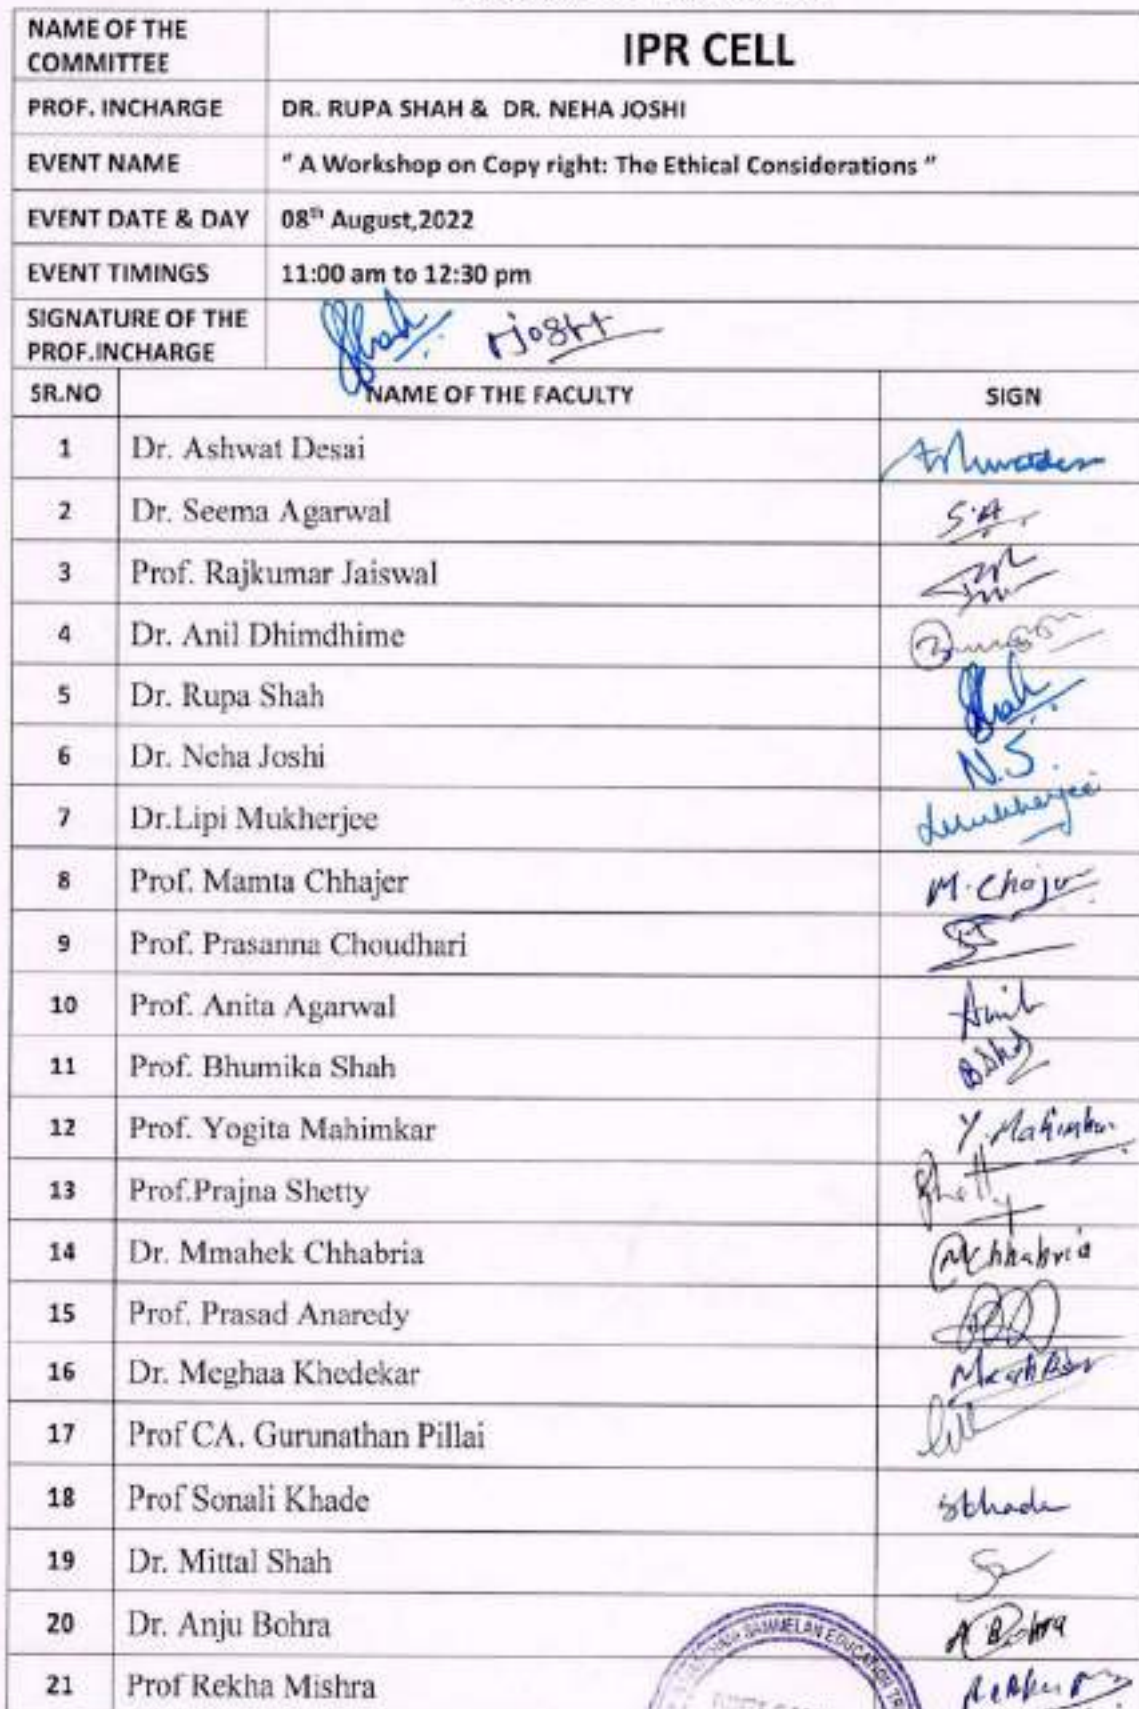 NAME OF THE
COMMITTEE
IPR CELL
PROF. INCHARGE DR. RUPA SHAH & DR. NEHA JOSHI
EVENT NAME " A Workshop on Copy right: The Ethical Considerations "
EVENT DATE & DAY 08th August,2022
EVENT TIMINGS 11:00 am to 12:30 pm
SIGNATURE OF THE
PROF.INCHARGE
Shah njoshi
SR.NO NAME OF THE FACULTY SIGN
1 Dr. Ashwat Desai
2 Dr. Seema Agarwal S.A.
3 Prof. Rajkumar Jaiswal
4 Dr. Anil Dhimdhime
5 Dr. Rupa Shah Shah
6 Dr. Neha Joshi N.S.
7 Dr.Lipi Mukherjee Lmukherjee
8 Prof. Mamta Chhajer
9 Prof. Prasanna Choudhari
10 Prof. Anita Agarwal
11 Prof. Bhumika Shah
12 Prof. Yogita Mahimkar Y. Mahimkar
13 Prof.Prajna Shetty Shetty
14 Dr. Mmahek Chhabria MChhabria
15 Prof. Prasad Anaredy
16 Dr. Meghaa Khedekar
17 Prof CA. Gurunathan Pillai
18 Prof Sonali Khade skhade
19 Dr. Mittal Shah
20 Dr. Anju Bohra A Bohra
21 Prof Rekha Mishra
SAMMELAN EDUCATION